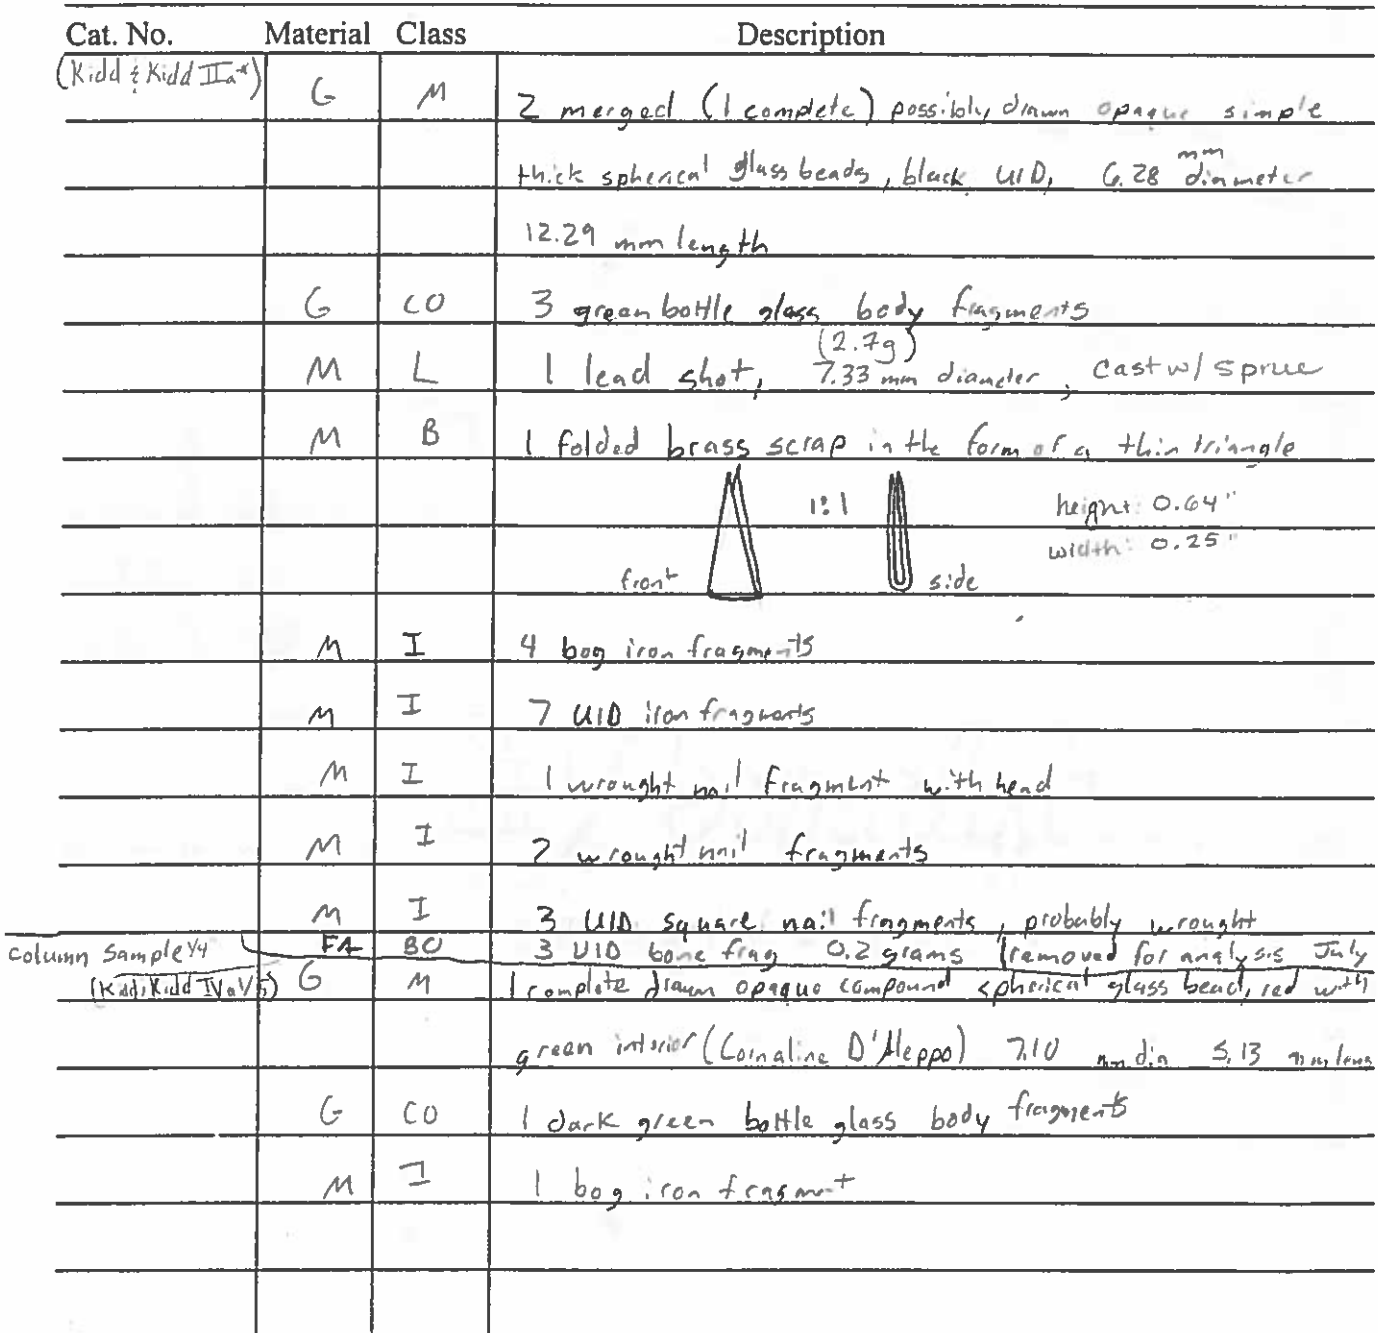 Cat. No. Material Class Description
(Kidd & Kidd IIa*) G M 2 merged (1 complete) possibly drawn opaque simple
thick spherical glass beads, black UID, 6.28 mm diameter
12.29 mm length
G CO 3 green bottle glass body fragments
(2.7g)
M L 1 lead shot, 7.33 mm diameter, Cast w/ Sprue
M B 1 folded brass scrap in the form of a thin triangle
1:1 height: 0.64"
width: 0.25"
front side
M I 4 bog iron fragments
M I 7 UID iron fragments
M I 1 wrought nail fragment with head
M I 2 wrought nail fragments
M I 3 UID square nail fragments, probably wrought
Column Sample 1/4 FA BO 3 UID bone frag 0.2 grams (removed for analysis July
(Kidd & Kidd IVa) G M 1 complete drawn opaque compound spherical glass bead, red with
green interior (Cornaline D'Aleppo) 7.10 mm dia 5.13 mm leng
G CO 1 dark green bottle glass body fragments
M I 1 bog iron fragment